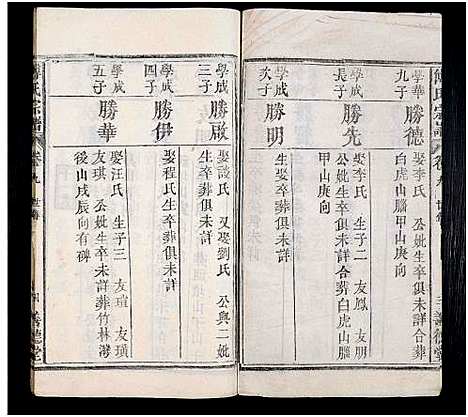 學華
九子
勝德
娶李氏 公妣生卒俱未詳合葬
白虎山腦甲山庚向
學成
長子
勝先
娶李氏 生子二 友鳳 友朋
公妣生卒俱未詳合葬白虎山腦
甲山庚向
學成
次子
勝明
生娶卒葬俱未詳
世譜
善德堂
學成
三子
勝啟
娶談氏 又娶劉氏 公與二妣
生卒葬俱未詳
學成
四子
勝伊
娶程氏生卒葬俱未詳
學成
五子
勝華
娶汪氏 生子三 友瑄 友璜
友琪 公妣生卒未詳葬竹林灣
後山戌辰向有碑
氏宗譜
卷九
世譜
善德堂